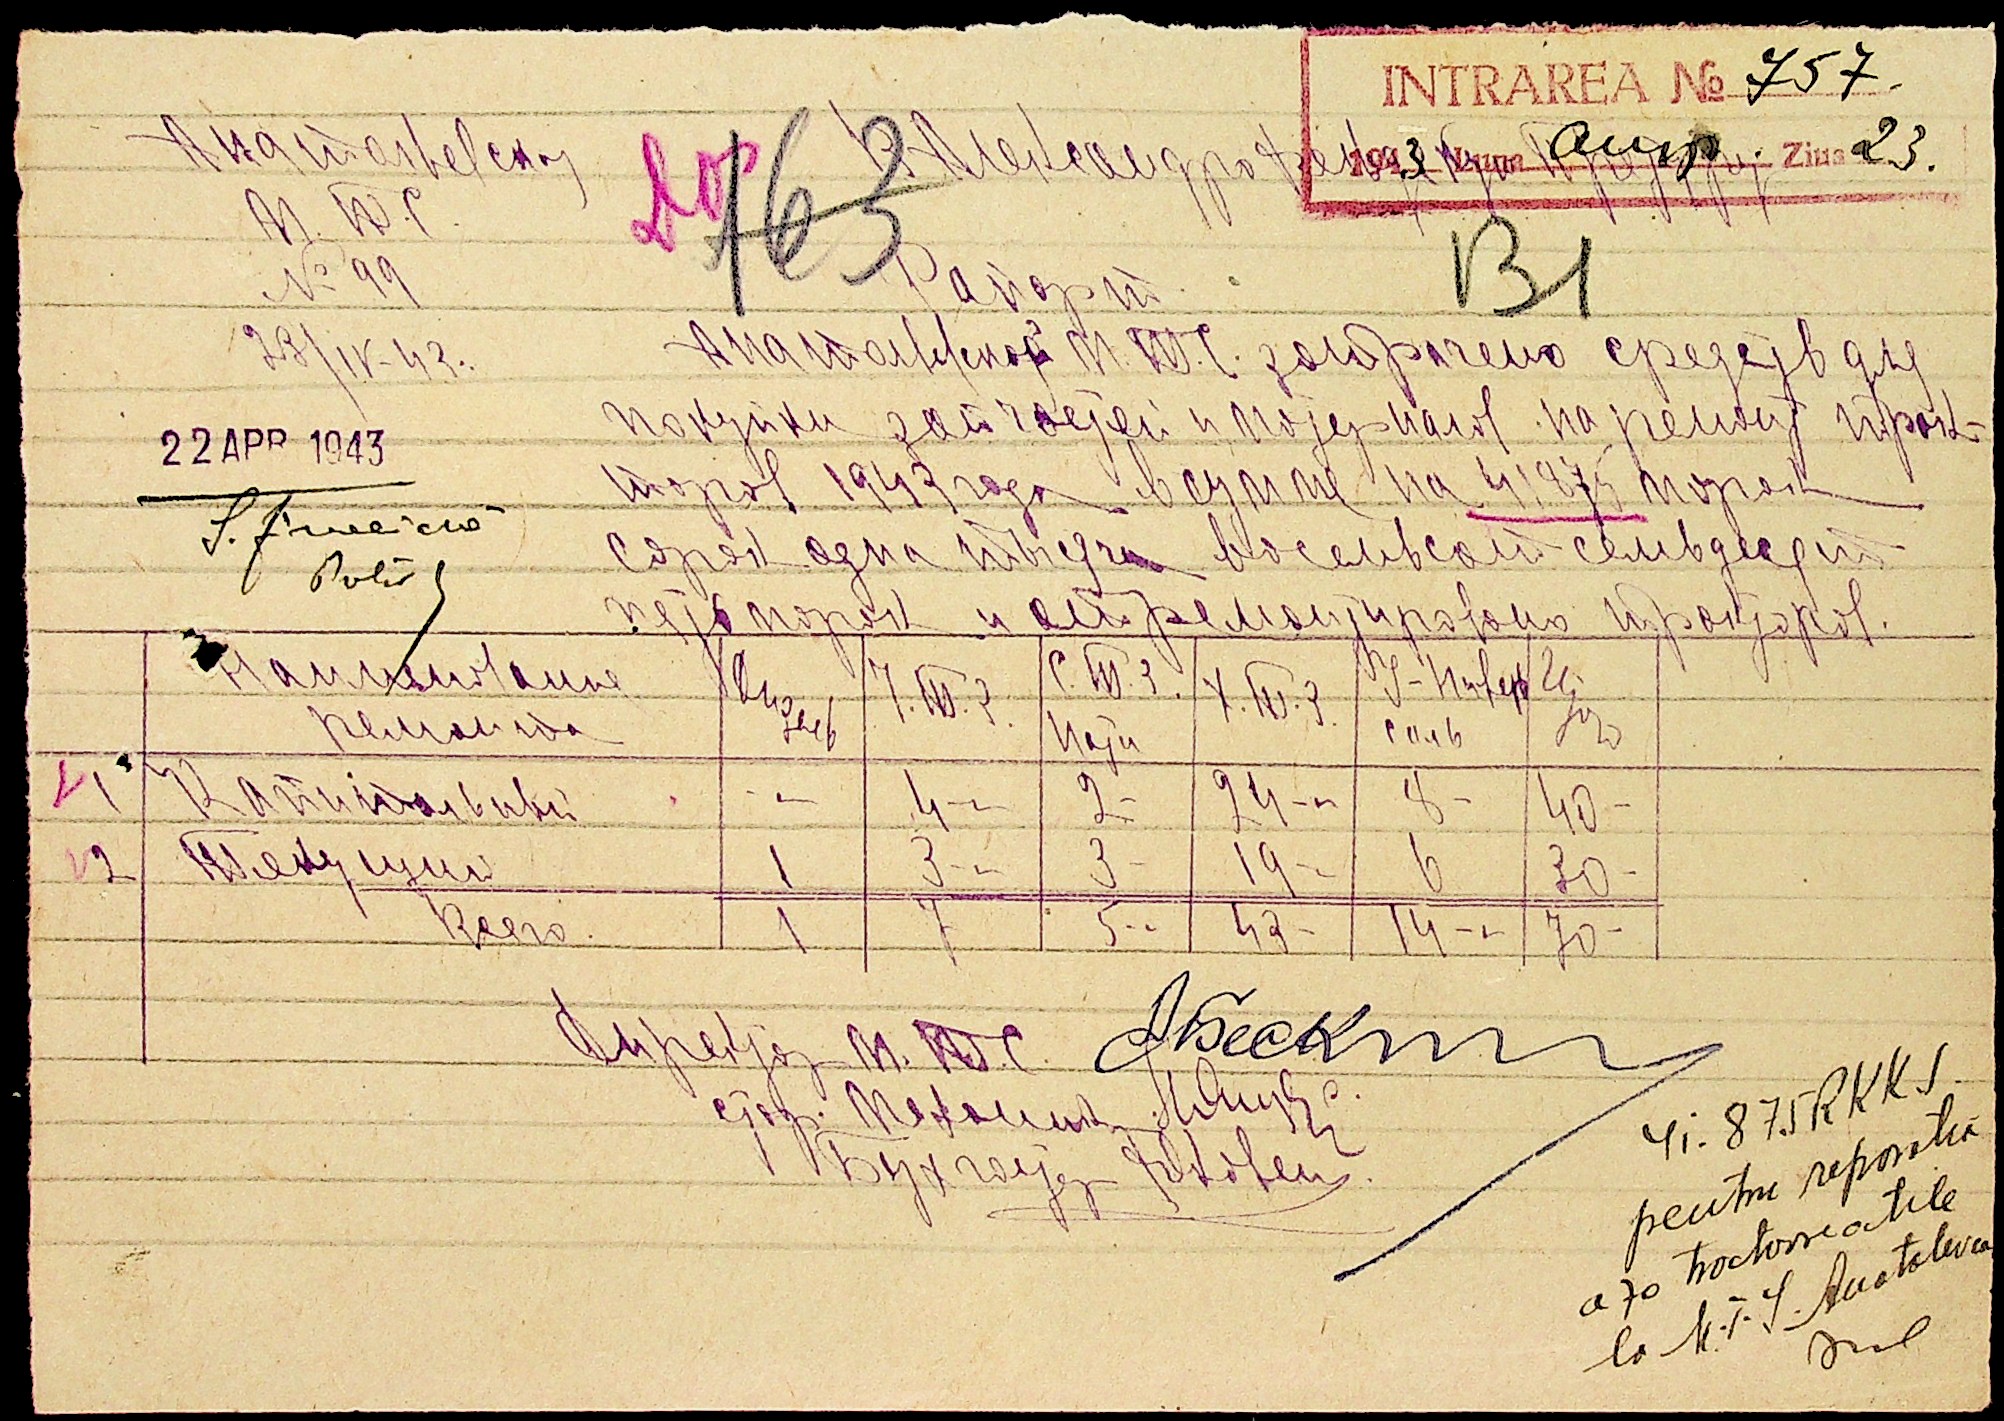 INTRAREA № 757.
1943 Luna апр. Ziua 23.
Анатольевская
М.Т.С.
№ 99
28/IV-43.
163
В1
Рапорт
22 APR 1943
Анатольевской М.Т.С. затрачено средств для
покупки запчастей и материалов на ремонт трак-
торов 1943 года в сумме на 41875 марок
сорок одна тысяча восемьсот семьдесят
пять марок и отремонтировано тракторов.
Наименование ремонта
Ч.Т.З.
С.Т.З. Нати
Х.Т.З.
У-ниверсаль
1 Капитальный - 4 2 24 8 40
2 Текущий 1 3 3 19 6 30
Всего. 1 7 5 43 14 70
Директор М.Т.С.
стар. Механик
Бухгалтер
41.875 RKKS.
pentru reparatia
a 70 tractoare
la M.T.S. Anatolevca